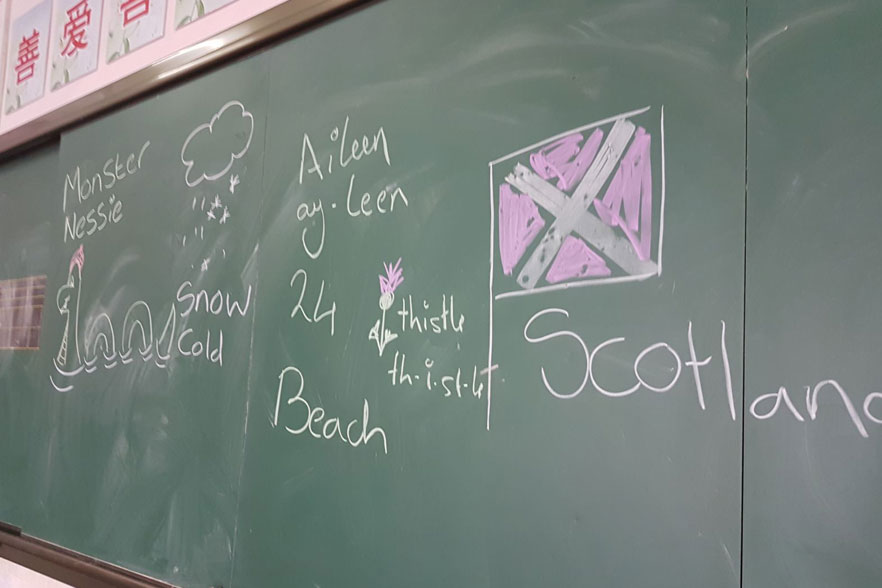 善 爱 喜
Monster
Nessie
Snow
Cold
Aileen
ay·leen
24
thistle
th-i-st-le
Beach
Scotland